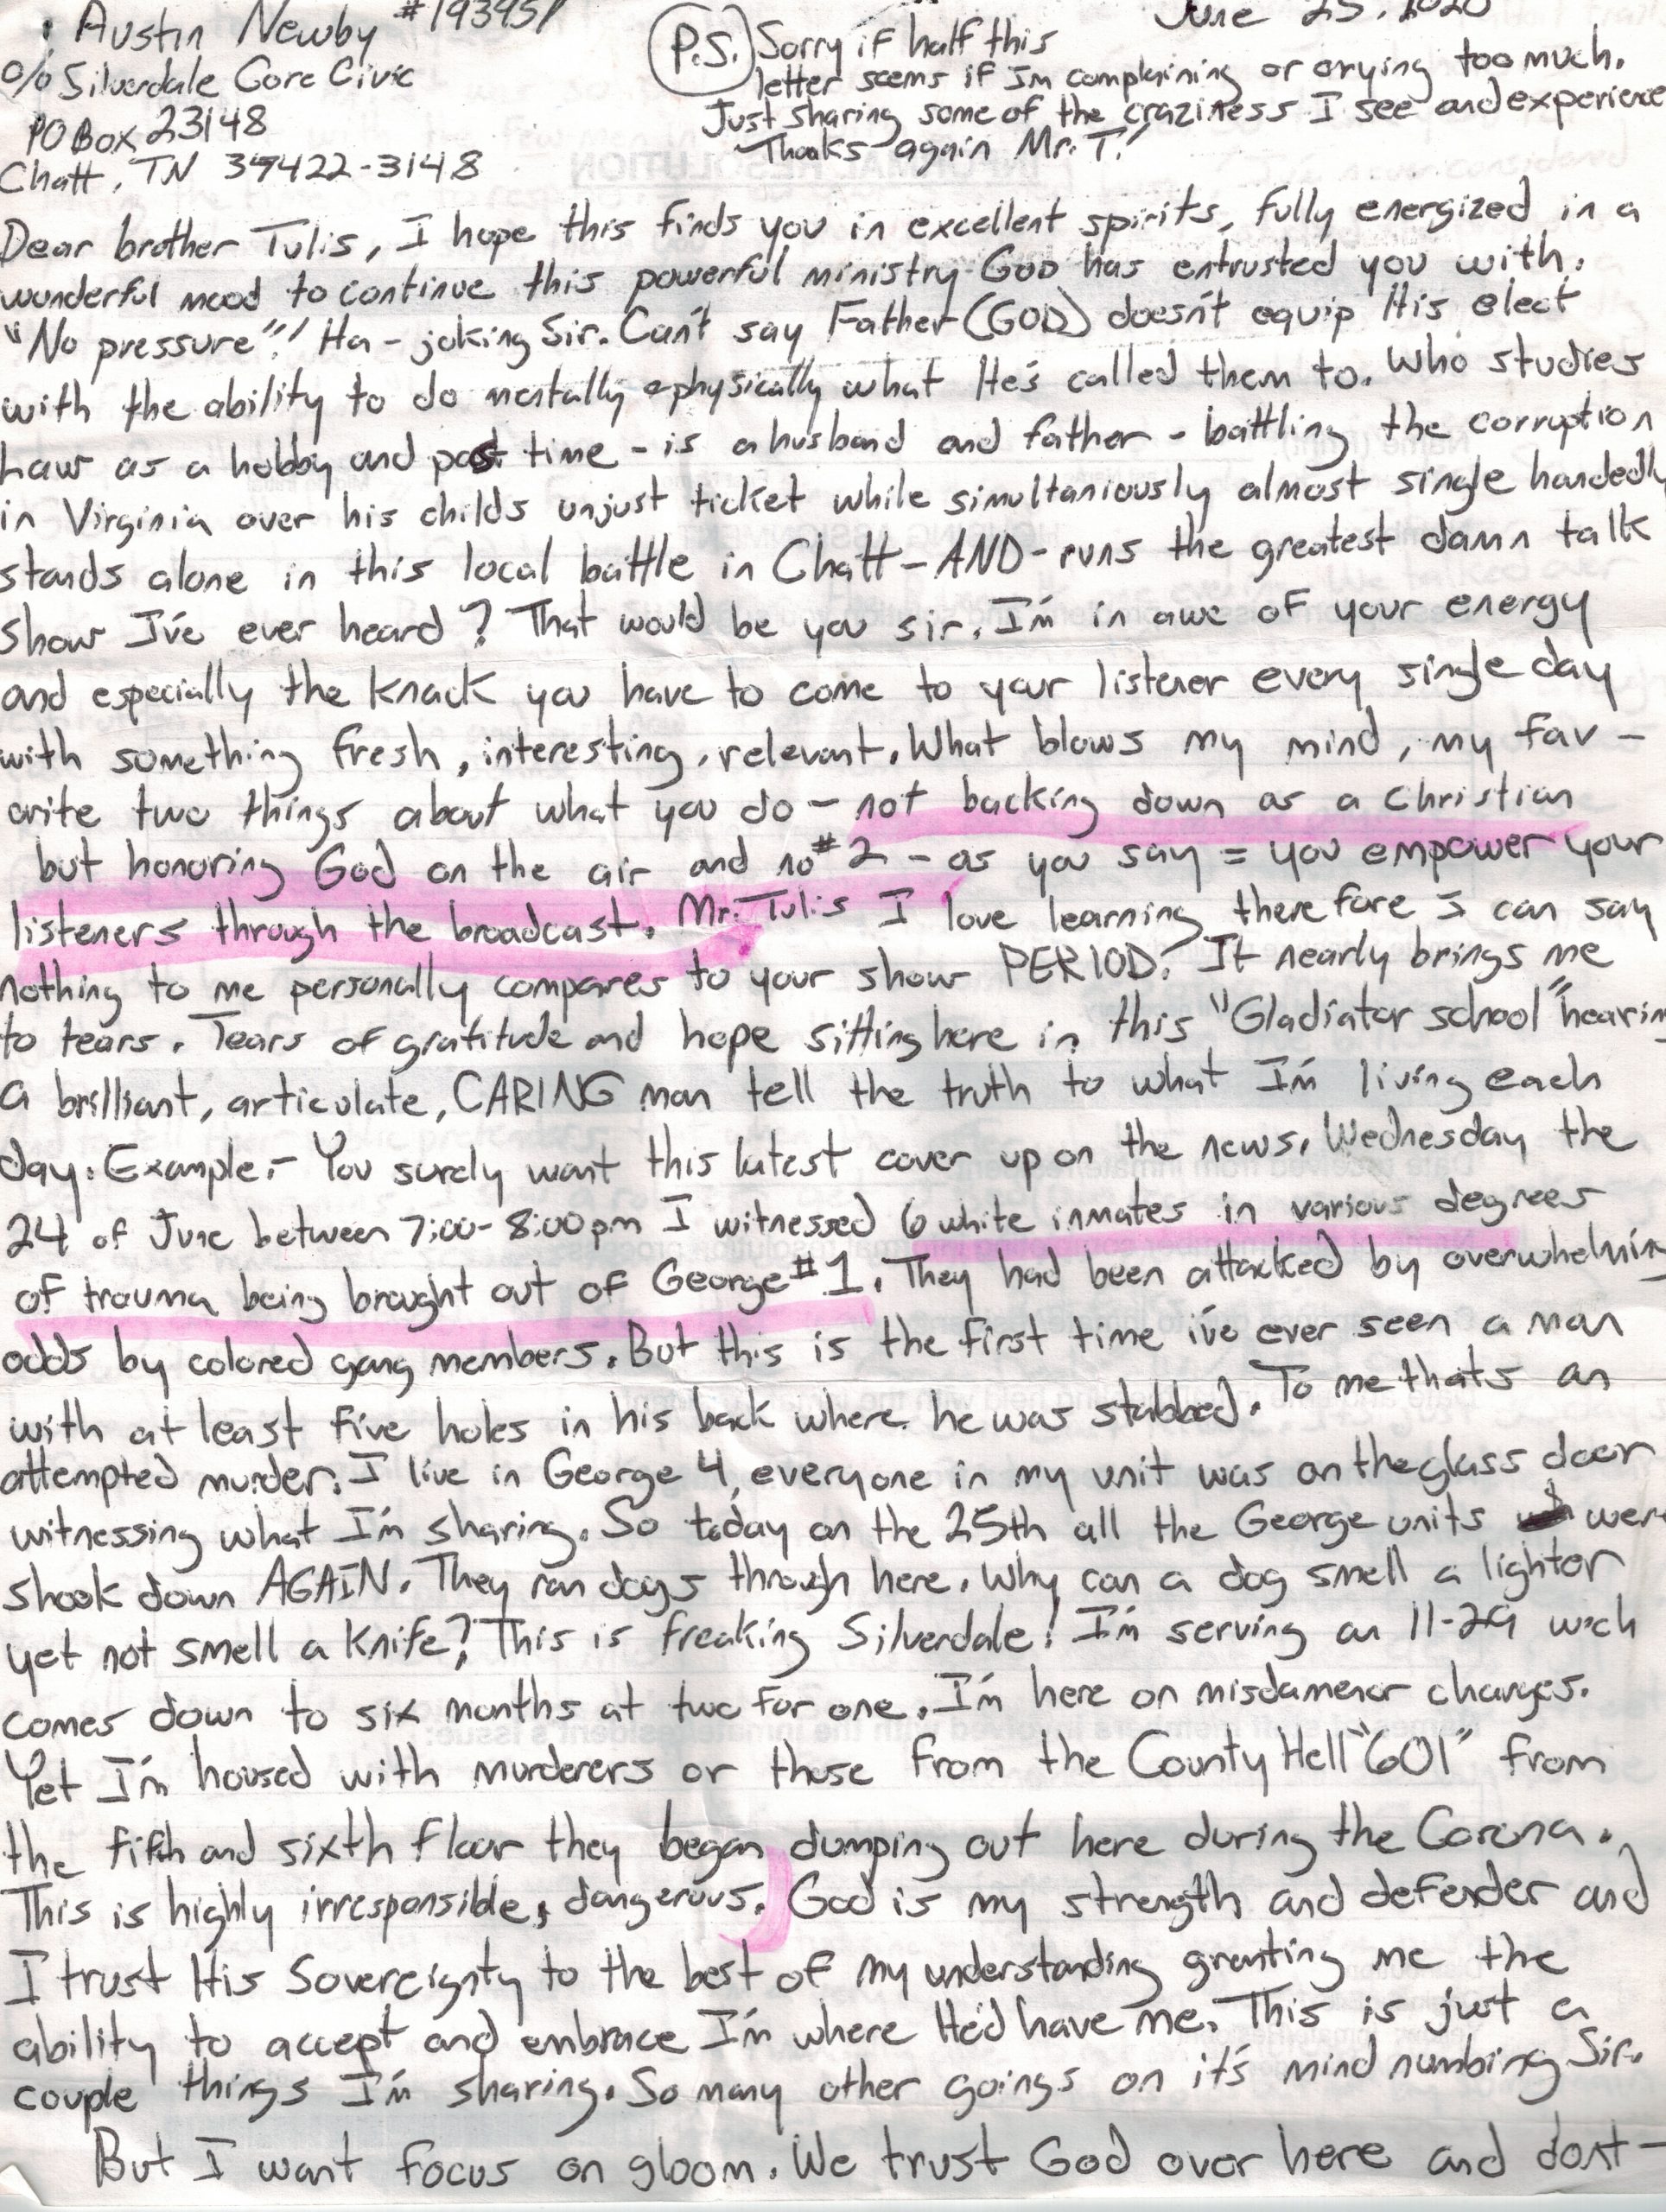 Austin Newby #193951
c/o Silverdale Core Civic
PO Box 23148
Chatt, TN 37422-3148
June 25, 2020
P.S. Sorry if half this
letter seems if Im complaining or crying too much.
Just sharing some of the craziness I see and experience
Thanks again Mr. T!
Dear brother Tulis, I hope this finds you in excellent spirits, fully energized in a
wonderful mood to continue this powerful ministry GOD has entrusted you with.
"No pressure"! Ha - joking Sir. Can't say Father (GOD) doesn't equip His elect
with the ability to do mentally & physically what He's called them to. Who studies
Law as a hobby and past time - is a husband and father - battling the corruption
in Virginia over his childs unjust ticket while simultaniously almost single handedly
stands alone in this local battle in Chatt - AND - runs the greatest damn talk
show I've ever heard? That would be you sir. I'm in awe of your energy
and especially the knack you have to come to your listener every single day
with something fresh, interesting, relevant. What blows my mind, my fav-
orite two things about what you do - not backing down as a Christian
but honoring God on the air and no#2 - as you say = you empower your
listeners through the broadcast. Mr. Tulis I love learning therefore I can say
nothing to me personally compares to your show PERIOD! It nearly brings me
to tears. Tears of gratitude and hope sitting here in this "Gladiator school" hearing
a brilliant, articulate, CARING man tell the truth to what I'm living each
day. Example - You surely want this latest cover up on the news. Wednesday the
24 of June between 7:00-8:00pm I witnessed 6 white inmates in various degrees
of trauma being brought out of George #1. They had been attacked by overwhelming
odds by colored gang members. But this is the first time i've ever seen a man
with at least five holes in his back where he was stabbed. To me thats an
attempted murder. I live in George 4, everyone in my unit was on the glass door
witnessing what I'm sharing. So today on the 25th all the George units were
shook down AGAIN. They ran dogs through here. Why can a dog smell a lighter
yet not smell a knife? This is freaking Silverdale! I'm serving an 11-29 wich
comes down to six months at two for one. I'm here on misdamenor charges.
Yet I'm housed with murderers or those from the County Hell "601" from
the fifth and sixth floor they began dumping out here during the Corona.
This is highly irresponsible, dangerous. God is my strength and defender and
I trust His Sovereignty to the best of my understanding granting me the
ability to accept and embrace I'm where He'd have me. This is just a
couple things I'm sharing. So many other goings on it's mind numbing Sir.
But I want focus on gloom. We trust God over here and dont-